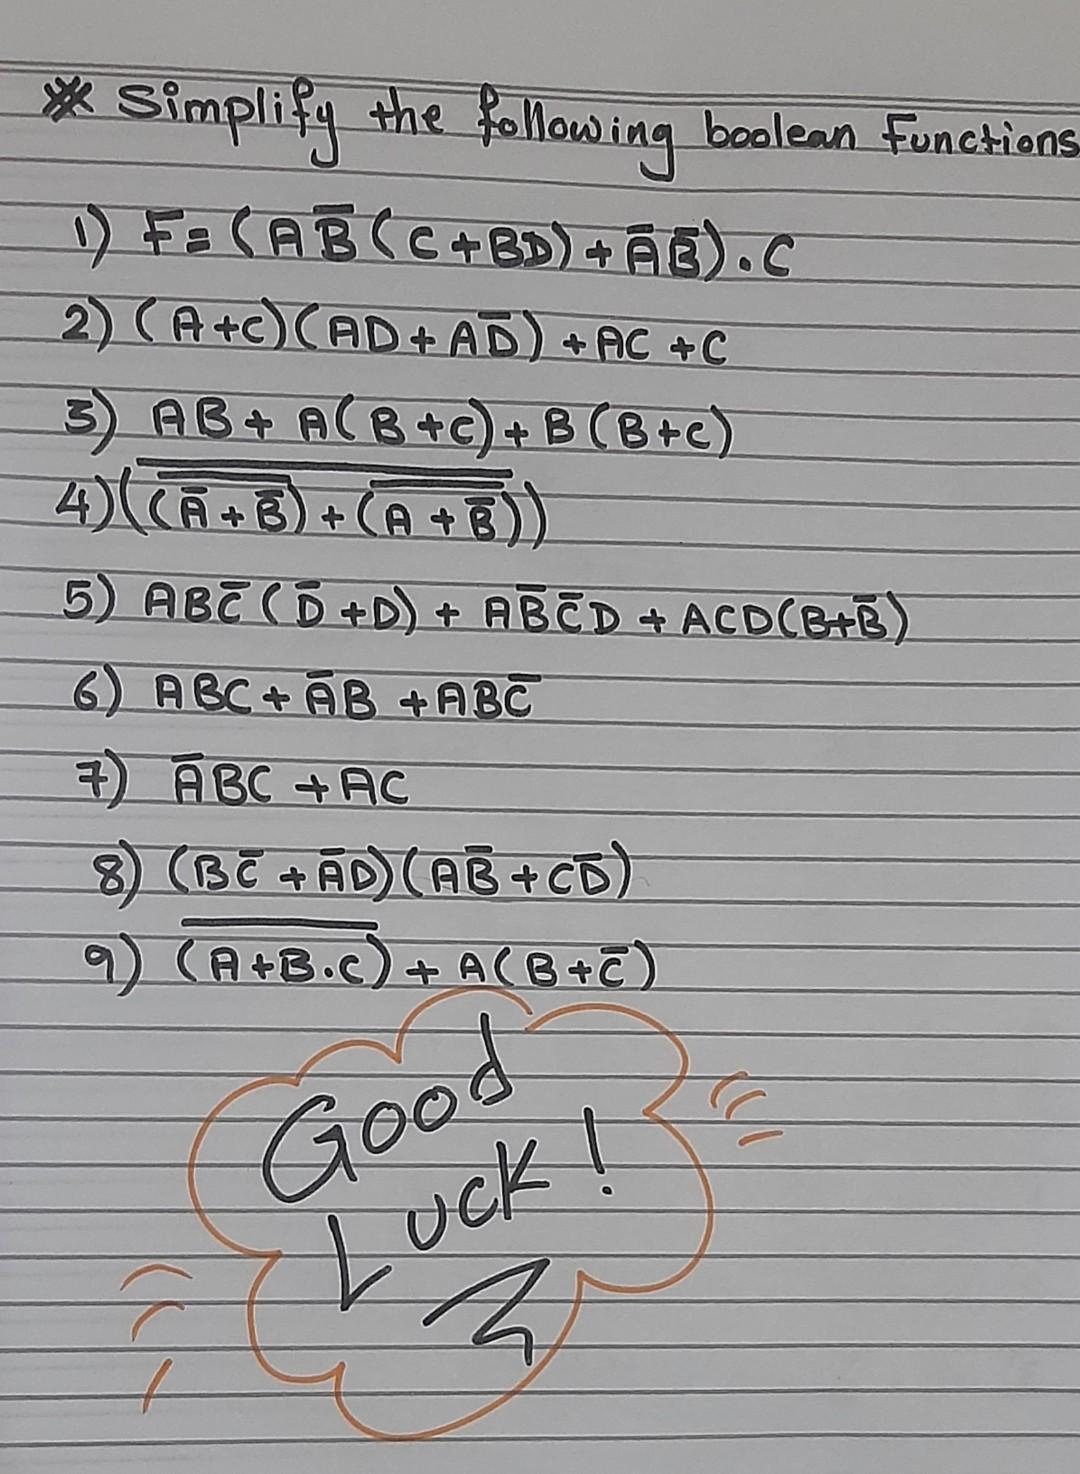 ※ Simplify the following boolean functions
1) F = (AB̅(C+BD) + A̅B̅).C
2) (A+C)(AD + AD̅) + AC + C
3) AB + A(B+C) + B(B+C)
4) (‾(‾(A̅ + B̅) + ‾(A + B̅)))
5) ABC̅(D̅ + D) + AB̅C̅D + ACD(B+B̅)
6) ABC + A̅B + ABC̅
7) A̅BC + AC
8) (BC̅ + A̅D)(AB̅ + CD̅)
9) ‾(A+B.C) + A(B+C̅)
Good
Luck!